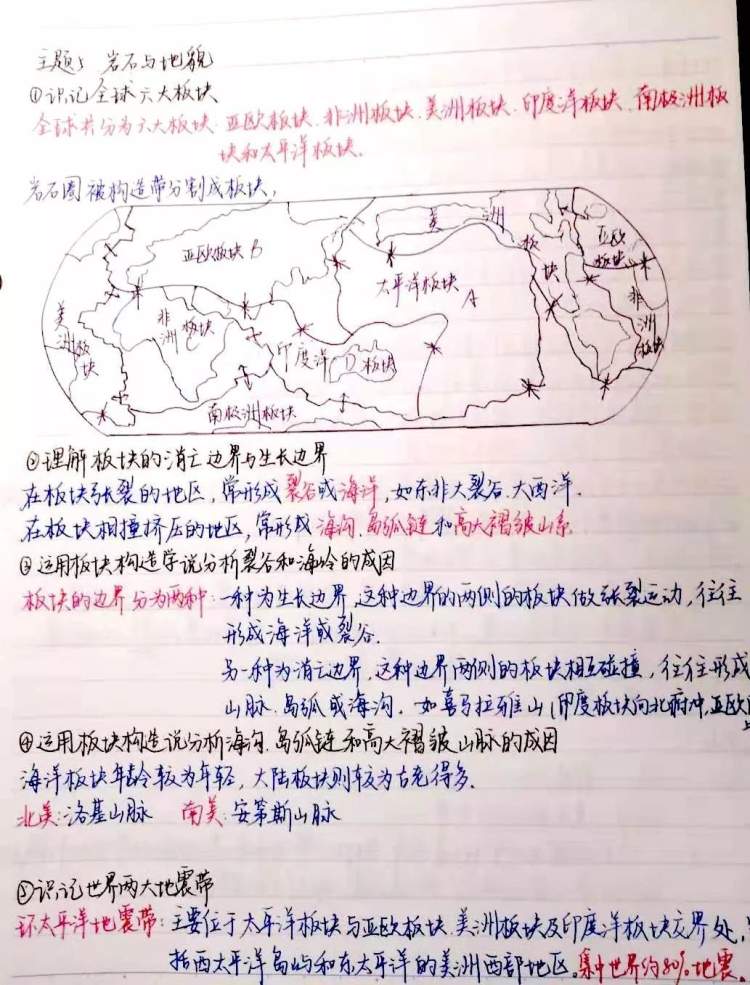 主题5 岩石与地貌
①识记全球六大板块
全球共分为六大板块:亚欧板块、非洲板块、美洲板块、印度洋板块、南极洲板
块和太平洋板块.
岩石圈被构造带分割成板块,
美 洲
板
块
亚欧板块B
亚欧
板块
太平洋板块
A
美
洲
板
块
非
洲板块
C
印度洋 D 板块
非
洲
板块
南极洲板块
②理解板块的消亡边界与生长边界
在板块张裂的地区,常形成裂谷或海洋,如东非大裂谷.大西洋.
在板块相撞挤压的地区,常形成海沟.岛弧链和高大褶皱山系
③运用板块构造学说分析裂谷和海岭的成因
板块的边界分为两种:一种为生长边界,这种边界的两侧的板块做张裂运动,往往
形成海洋或裂谷.
另一种为消亡边界,这种边界两侧的板块相互碰撞,往往形成
山脉.岛弧或海沟.如喜马拉雅山(印度板块向北俯冲,亚欧
④运用板块构造说分析海沟.岛弧链和高大褶皱山脉的成因
海洋板块年龄较为年轻,大陆板块则较为古老得多.
北美:洛基山脉 南美:安第斯山脉
⑤识记世界两大地震带
环太平洋地震带:主要位于太平洋板块与亚欧板块.美洲板块及印度洋板块交界处,
括西太平洋岛屿和东太平洋的美洲西部地区。集中世界约80%地震.